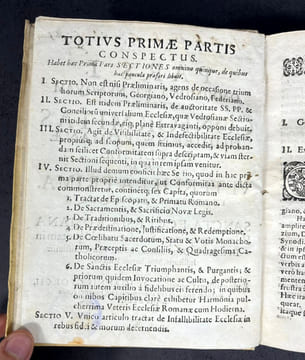 TOTIVS PRIMÆ PARTIS
CONSPECTUS.
Habet hæc Prima Pars SECTIONES omnino quinque, de quibus
hæc paucula præfari libuit.
I. SECTIO. Non est nisi Præliminaris, agens de occasione trium
horum Scriptorum, Georgiano, Vedrosiano, Federiano.
II. SECTIO. Est itidem Præliminaris, de auctoritate SS. PP. &
Conciliorũ universalium Ecclesiæ, quæ Vedrosianæ Sectio-
ni idem secundæ, eiq; planè Extravaganti, opponi debuit.
III. SECTIO. Agit de Visibilitate, & Indefectibilitate Ecclesiæ,
propiusq; ad scopum, quem stinamus, accedit, ad proban-
dam scilicet Conformitatem supra descriptam, & viam ster-
nit Sectioni sequenti, in qua in rem ipsam venitur.
IV. SECTIO. Illud demum conficit hæc Sectio, quod in hac pri-
ma parte propriè intenditur, ut Conformitas ante dicta
commonstretur, continetq; sex Capita, quorum
1. Tractat de Episcopatu, & Primatu Romano.
2. De Sacramentis, & Sacrificio Novæ Legis.
3. De Traditionibus, & Ritibus.
4. De Prædestinatione, Justificatione, & Redemptione.
5. De Cœlibatu Sacerdotum, Statu & Votis Monacho-
rum, Præceptis ac Consiliis, & Quadragesima Ca-
tholicorum.
6. De Sanctis Ecclesiæ Triumphantis, & Purgantis; &
priorum quidem Invocatione ac Cultu, de posterio-
rum autem auxilio à fidelibus eis ferendo; in quibus
omnibus Capitibus clarè exhibetur Harmonia pul-
cherrima Veteris Ecclesiæ Romanæ cum Hodierna.
SECTIO V. Unico articulo tractat de Infallibilitate Ecclesiæ in
rebus fidei & morum decernendis.